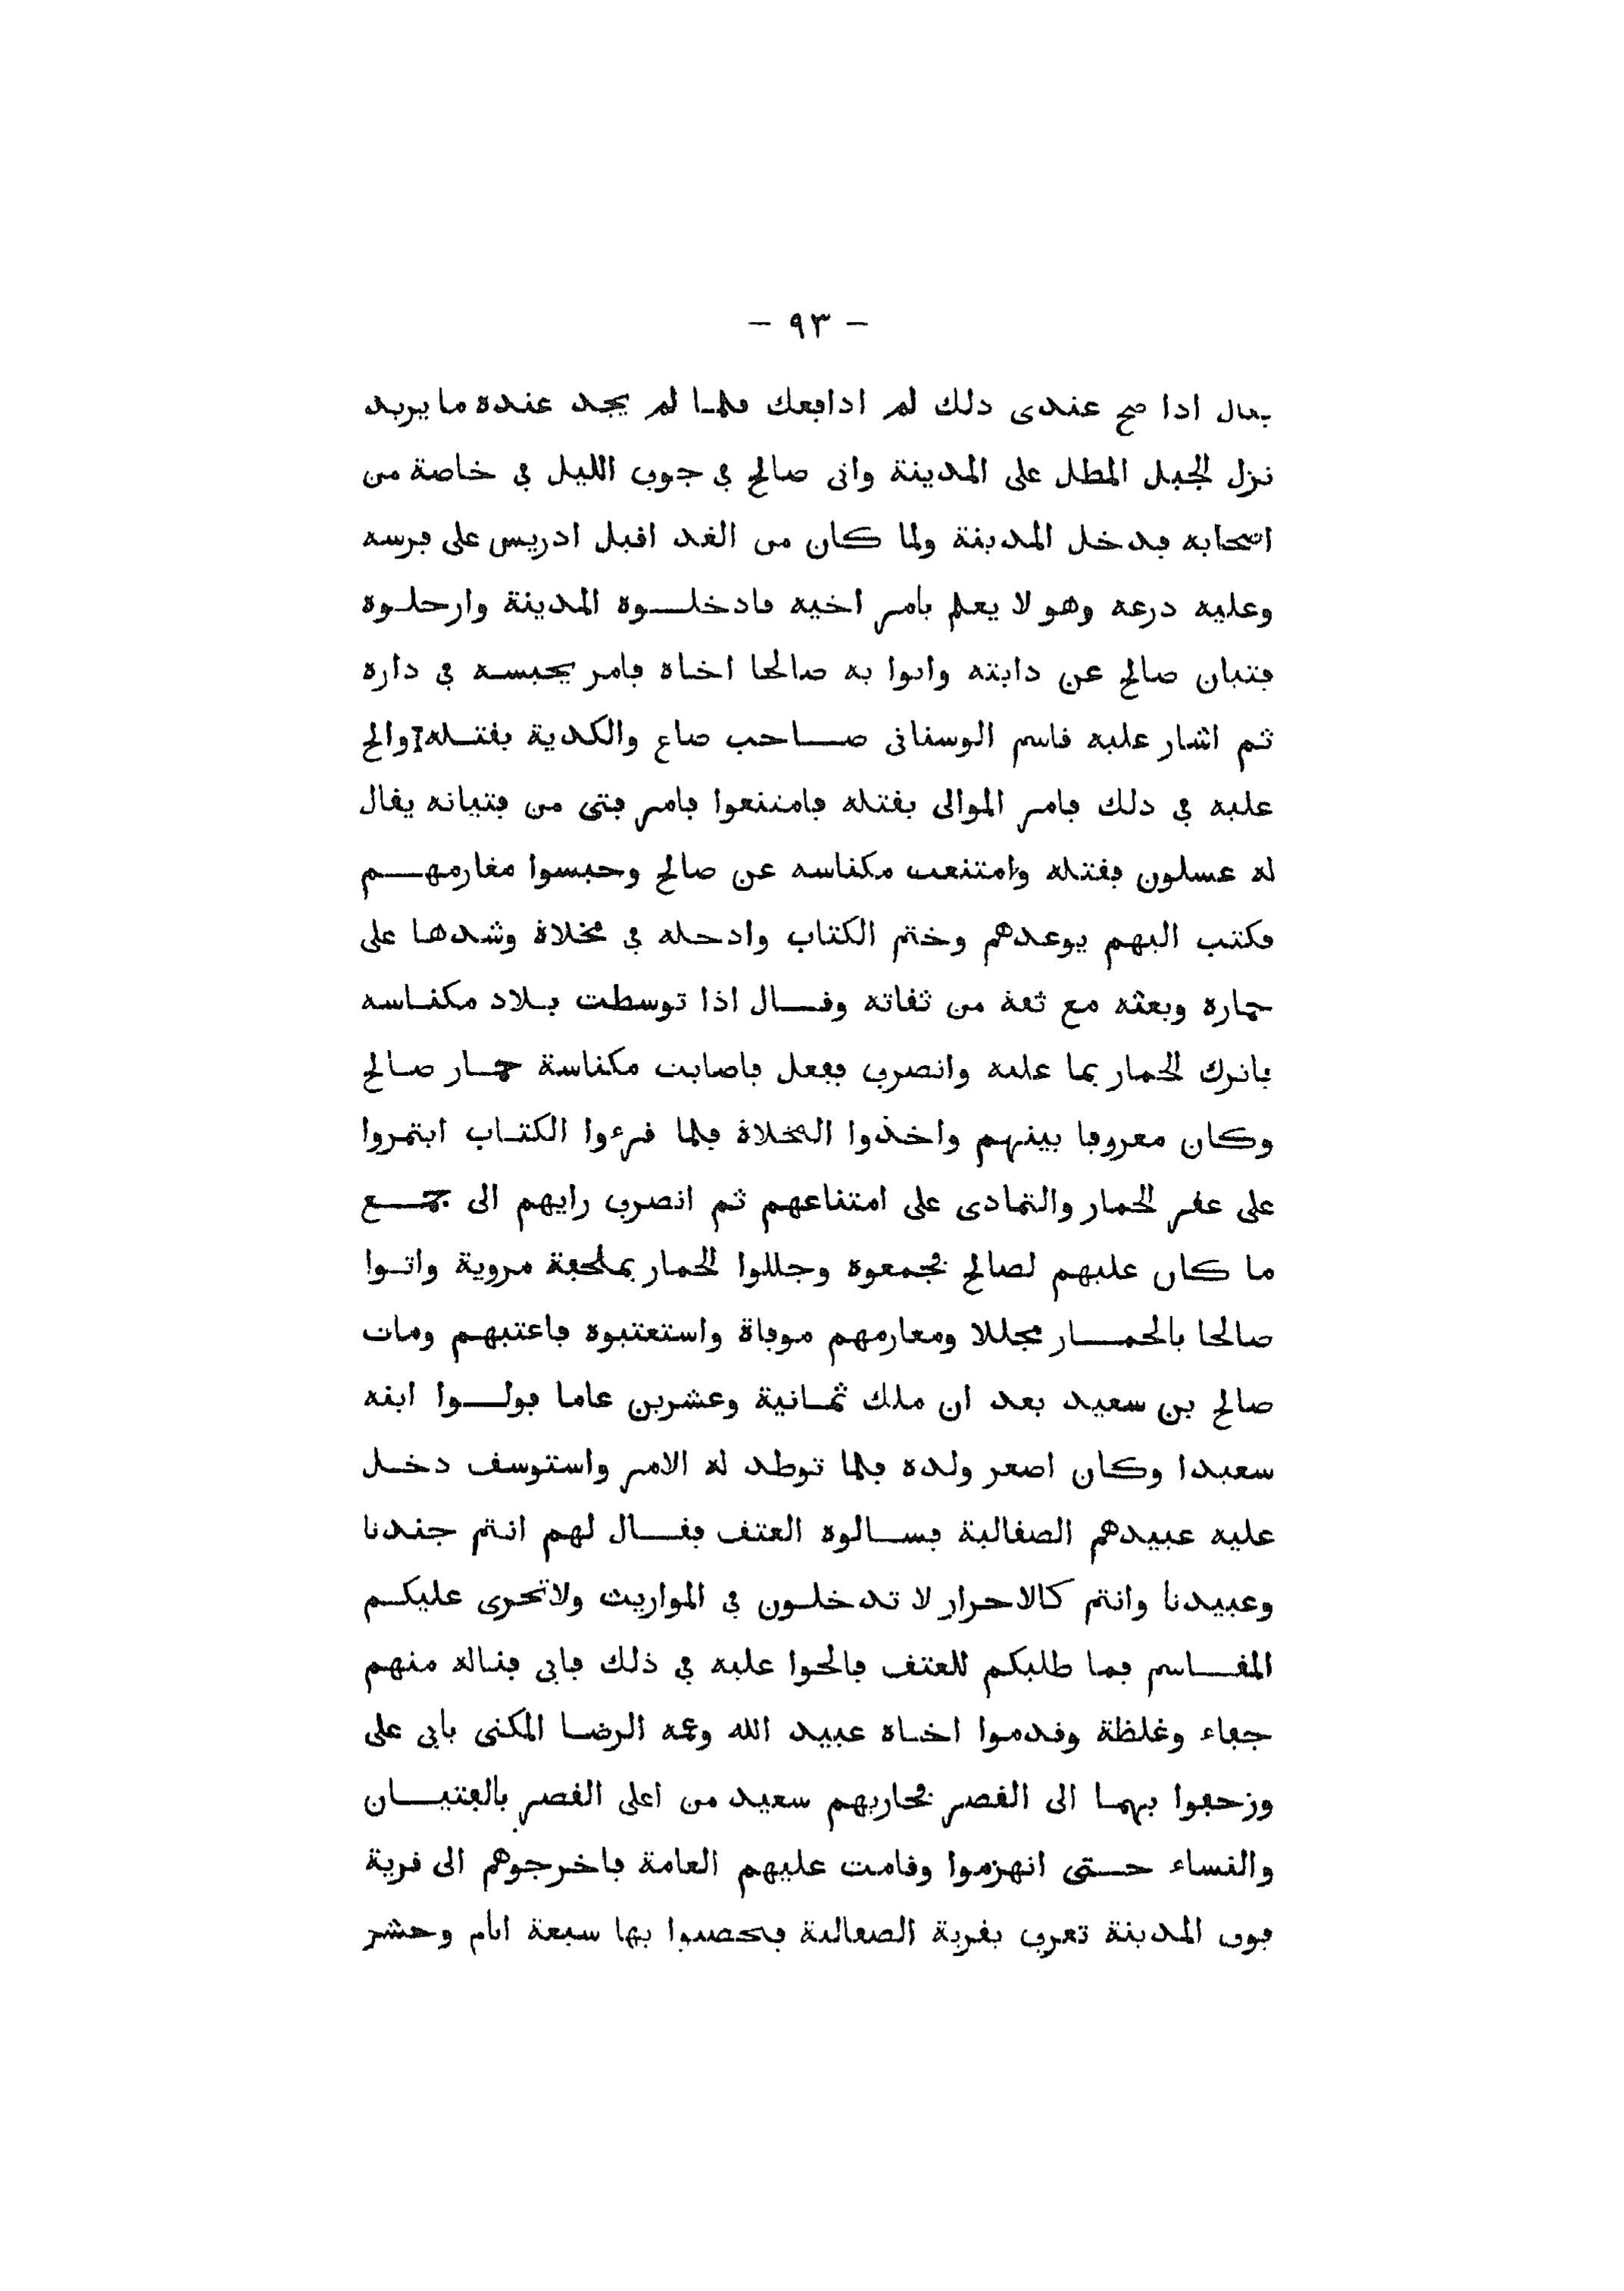 – ٩٣ –
فقال اذا صح عندى ذلك لم ادافعك فلما لم يجد عنده ما يريد
نزل الجبل المطل على المدينة واتى صالح في جوف الليل في خاصة من
اصحابه فدخل المدينة ولما كان من الغد اقبل ادريس على فرسه
وعليه درعه وهو لا يعلم بامر اخيه فادخلوه المدينة وارحلوه
فتيان صالح عن دابته واتوا به صالحا اخاه فامر بحبسه في داره
ثم اشار عليه قاسم الوسناني صاحب صاع والكدية بقتله والح
عليه في ذلك فامر الموالى بقتله فامتنعوا فامر فتى من فتيانه يقال
له عسلون فقتله وامتنعت مكناسه عن صالح وحبسوا مغارمهم
فكتب اليهم يوعدهم وختم الكتاب وادخله في مخلاة وشدها على
حماره وبعثه مع ثقة من ثقاته وقال اذا توسطت بلاد مكناسه
فاترك الحمار بما عليه وانصرف ففعل فاصابت مكناسة حمار صالح
وكان معروفا بينهم واخذوا المخلاة فلما قرءوا الكتاب ابتمروا
على عقر الحمار والتمادى على امتناعهم ثم انصرف رايهم الى جمع
ما كان عليهم لصالح فجمعوه وجللوا الحمار بملحفة مروية واتوا
صالحا بالحمار مجللا ومغارمهم موفاة واستعتبوه فاعتبهم ومات
صالح بن سعيد بعد ان ملك ثمانية وعشرين عاما فولوا ابنه
سعيدا وكان اصغر ولده فلما توطد له الامر واستوسق دخل
عليه عبيدهم الصقالبة فسالوه العتق فقال لهم انتم جندنا
وعبيدنا وانتم كالاحرار لا تدخلون في المواريث ولا تجرى عليكم
المقاسم فما طلبكم للعتق فالحوا عليه في ذلك فابى فناله منهم
جفاء وغلظة وقدموا اخاه عبيد الله وعمه الرضا المكنى بابى على
وزحفوا بهما الى القصر فحاربهم سعيد من اعلى القصر بالفتيان
والنساء حتى انهزموا وقامت عليهم العامة فاخرجوهم الى قرية
فوق المدينة تعرف بقرية الصقالبة فتحصنوا بها سبعة ايام وحشر